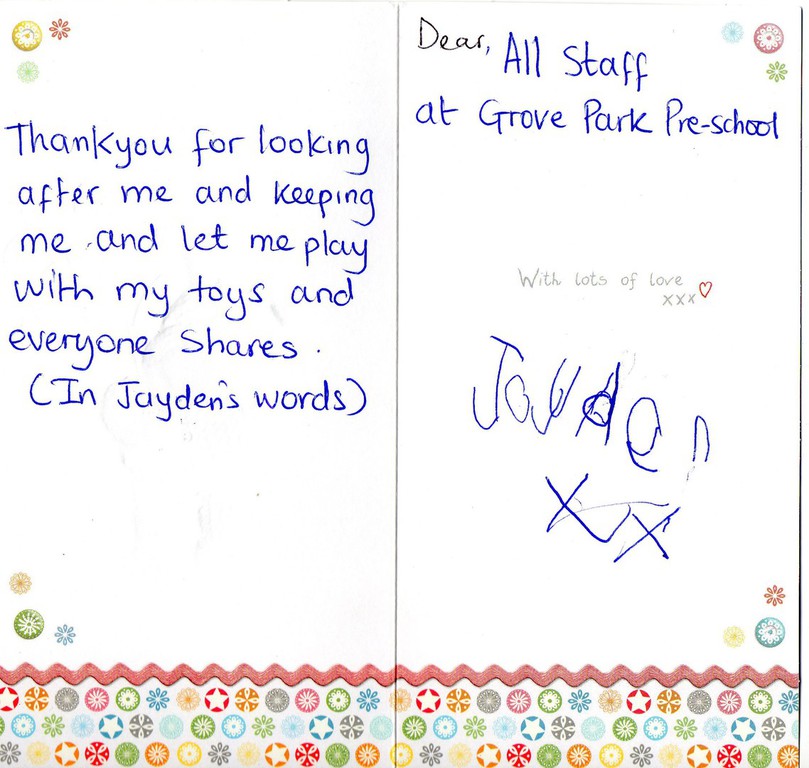 Thankyou for looking
after me and keeping
me and let me play
with my toys and
everyone shares.
(In Jayden's words)
Dear, All Staff
at Grove Park Pre-school
With lots of love
xxx
Jayden
XX